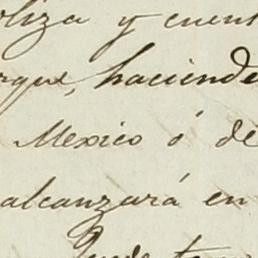 liza y cuen
rque, haciende
Mexico ó de
alcanzará en